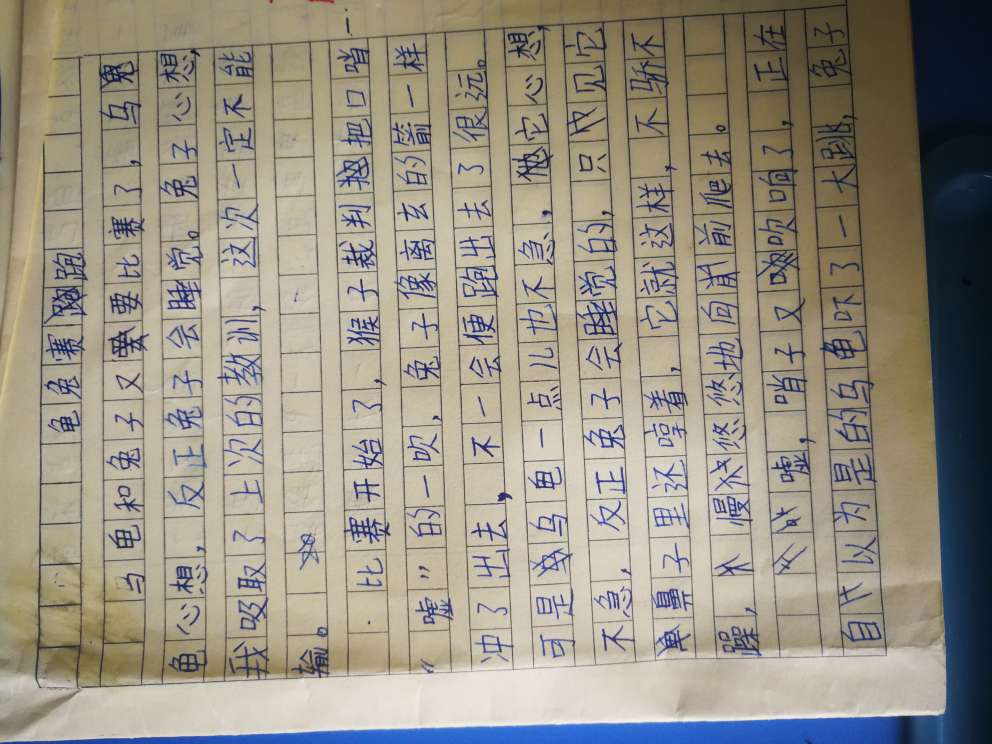 龟兔赛跑
乌龟和兔子又要比赛了，乌
龟心想，反正兔子会睡觉。兔子心想，
我吸取了上次的教训，这次一定不能
输。
比赛开始了，猴子裁判把口哨
“嘘”的一吹，兔子像离玄的箭一样
冲了出去，不一会便跑出去了很远。
可是乌龟一点儿也不急，它心想，
不急，反正兔子会睡觉的，只见它
鼻子里还哼着，它就这样，不骄不
躁，慢悠悠地向前爬去。
嘘，哨子又吹响了，正在
自以为是的乌龟吓了一大跳，兔子